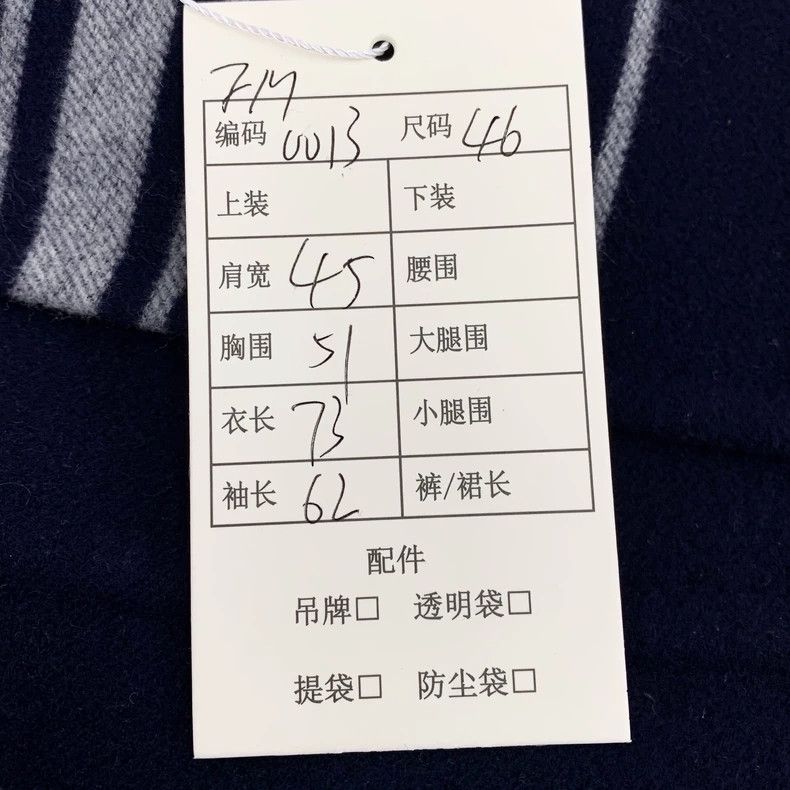 编码 0013 尺码 46
上装 下装
肩宽 45 腰围
胸围 51 大腿围
衣长 73 小腿围
袖长 62 裤/裙长
配件
吊牌□ 透明袋□
提袋□ 防尘袋□